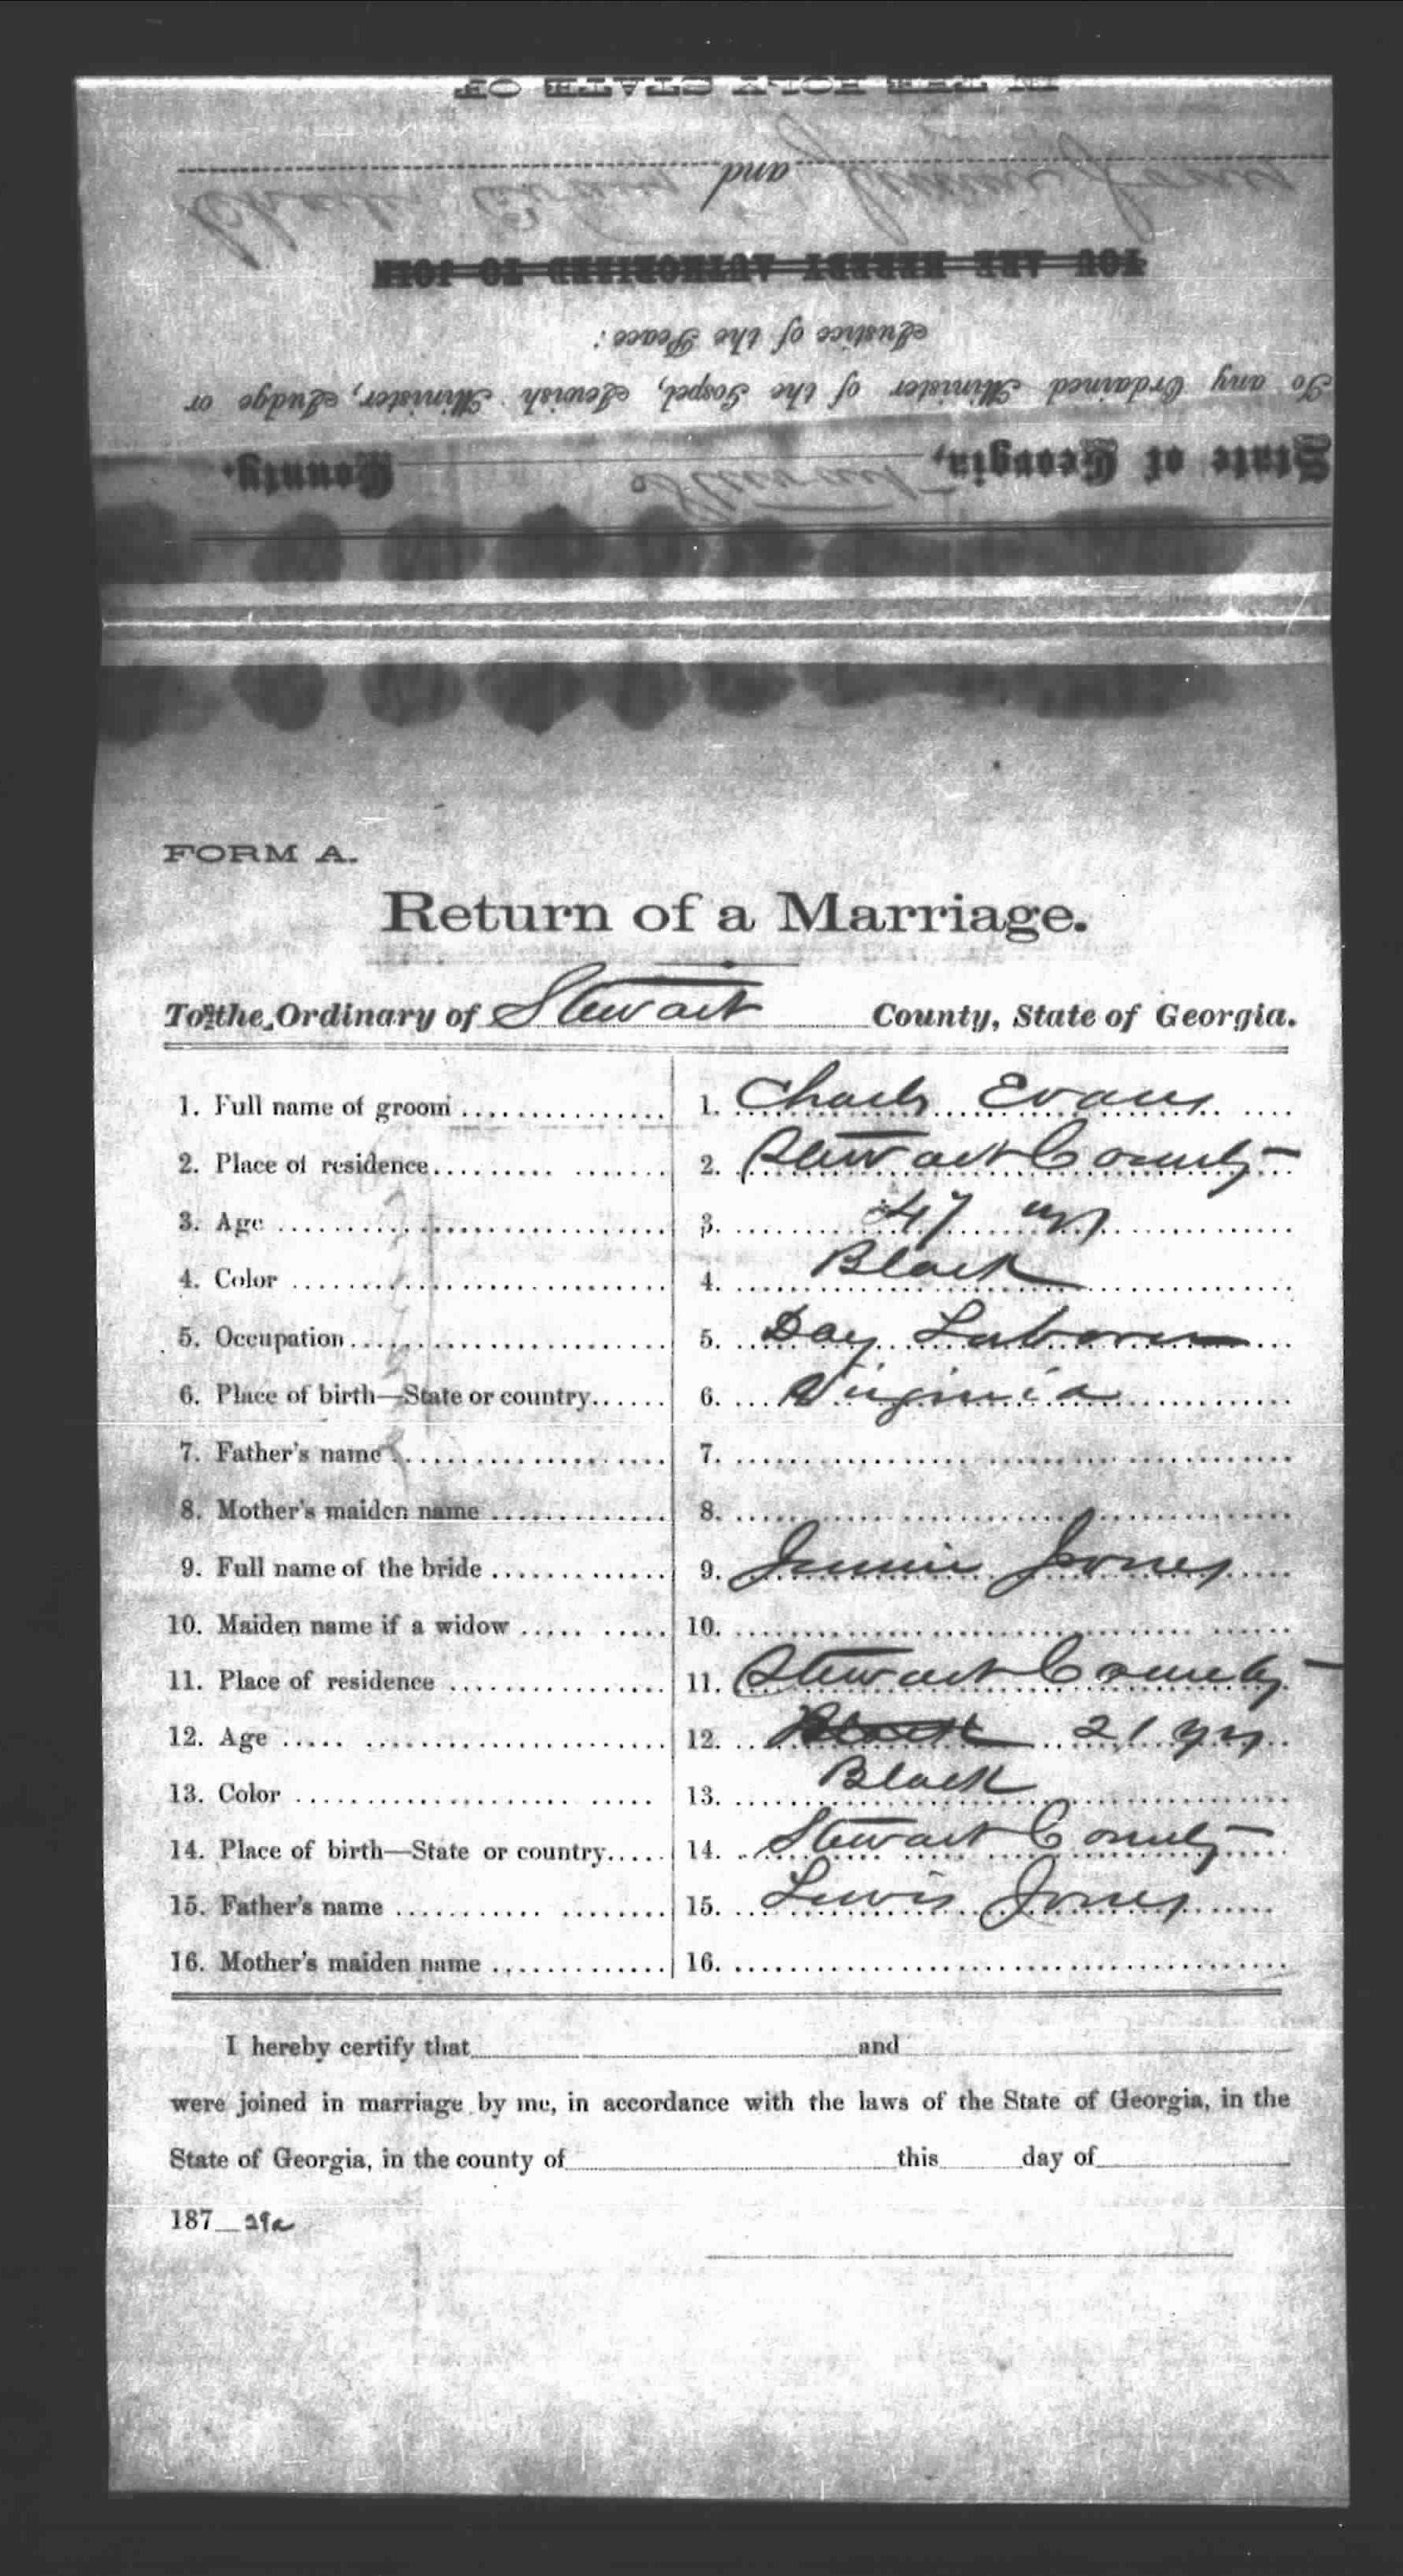 IN THE HOLY STATE OF
and
Charles Evans Jennie Jones
YOU ARE HEREBY AUTHORIZED TO JOIN
Justice of the Peace:
To any Ordained Minister of the Gospel, Jewish Minister, Judge or
State of Georgia, Stewart County.
FORM A.
Return of a Marriage.
To the Ordinary of Stewart County, State of Georgia.
1. Full name of groom 1. Charls Evans
2. Place of residence 2. Stewart County
3. Age 3. 47 yrs
4. Color 4. Black
5. Occupation 5. Day Laborer
6. Place of birth—State or country 6. Virginia
7. Father's name 7.
8. Mother's maiden name 8.
9. Full name of the bride 9. Jennie Jones
10. Maiden name if a widow 10.
11. Place of residence 11. Stewart County
12. Age 12. Black 21 yrs
13. Color 13. Black
14. Place of birth—State or country 14. Stewart County
15. Father's name 15. Lewis Jones
16. Mother's maiden name 16.
I hereby certify that and
were joined in marriage by me, in accordance with the laws of the State of Georgia, in the
State of Georgia, in the county of this day of
187 29a